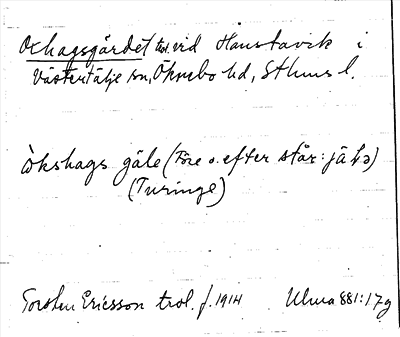 Oxhagsgärdet vid Hanstavik i
Västertälje sn, Öknebo hd, Sthms l.
òkshags gäle (Före o. efter står: jä
(Turinge)
Torsten Ericsson trol. f. 1914 Ulma 881:17g